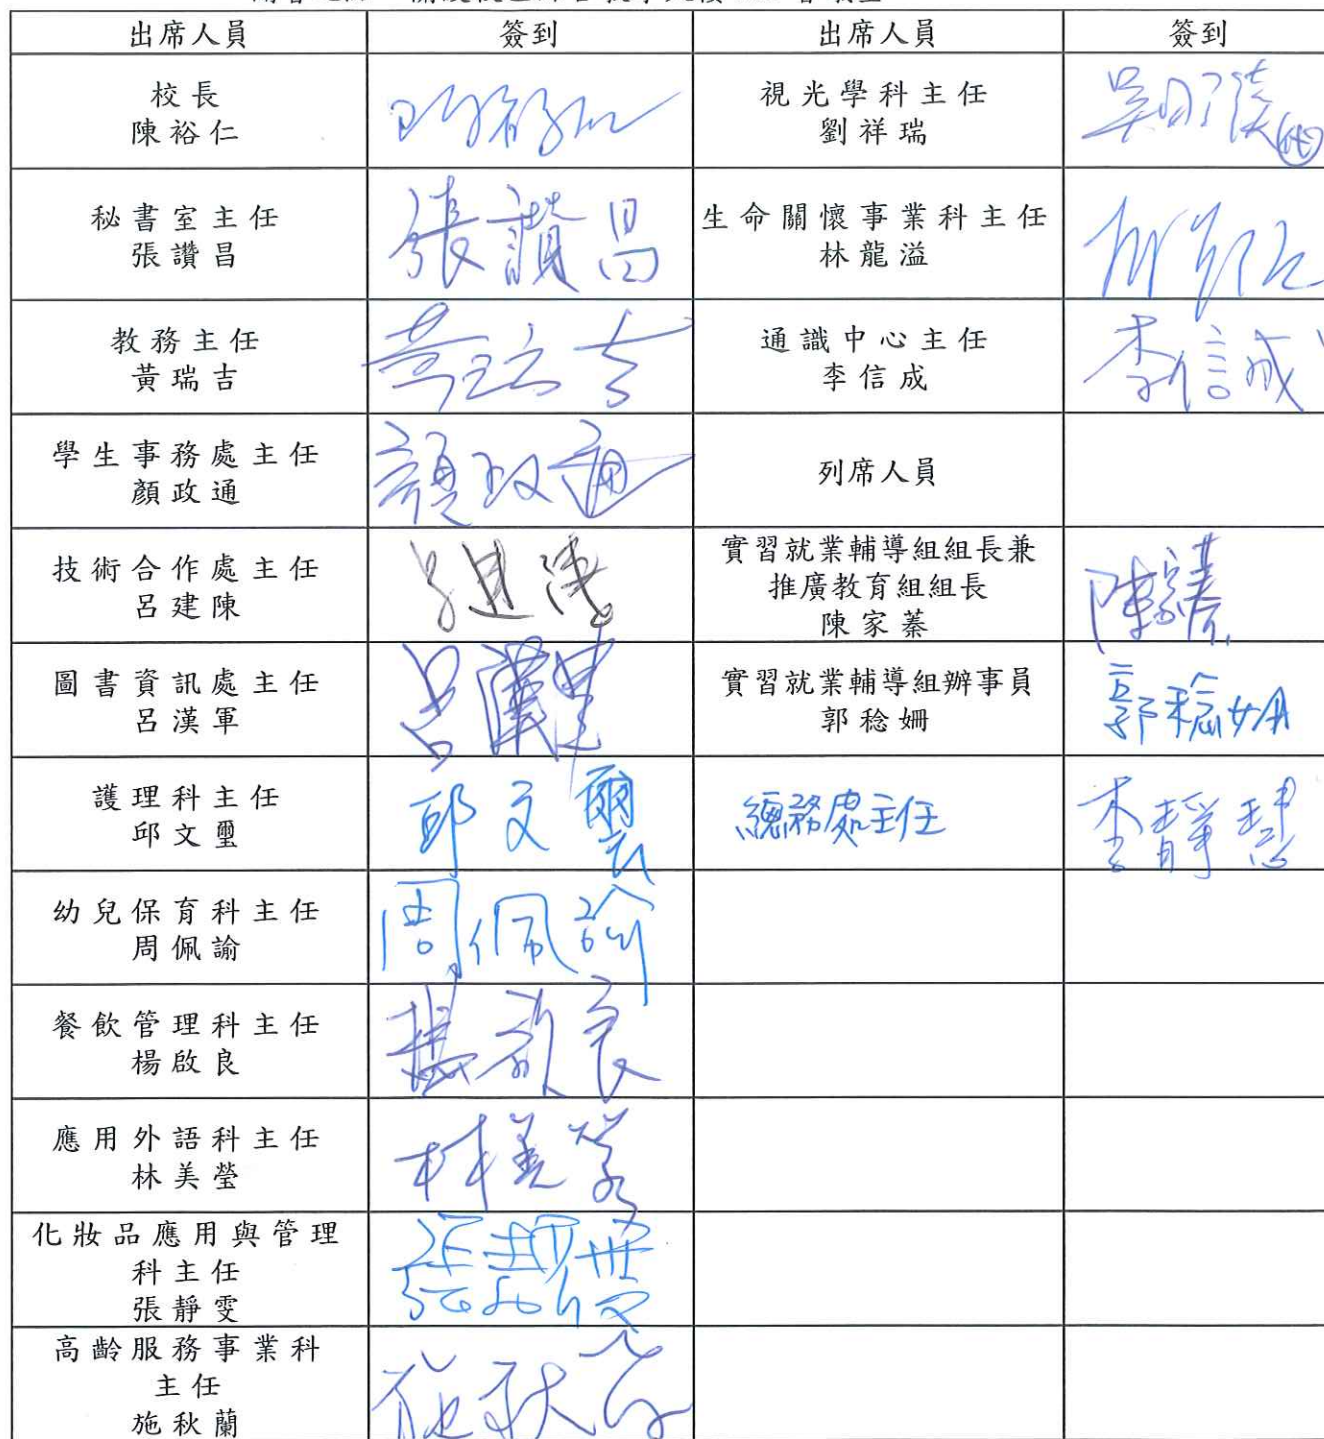 出席人員 簽到 出席人員 簽到
校長
陳裕仁
視光學科主任
劉祥瑞
秘書室主任
張讚昌
張讚昌
生命關懷事業科主任
林龍溢
教務主任
黃瑞吉
黃瑞吉
通識中心主任
李信成
李信成
學生事務處主任
顏政通
顏政通
列席人員
技術合作處主任
呂建陳
實習就業輔導組組長兼
推廣教育組組長
陳家蓁
陳家蓁
圖書資訊處主任
呂漢軍
呂漢軍
實習就業輔導組辦事員
郭稔姍
郭稔姍
護理科主任
邱文璽
邱文璽
總務處主任
李靜慧
幼兒保育科主任
周佩諭
周佩諭
餐飲管理科主任
楊啟良
楊啟良
應用外語科主任
林美瑩
林美瑩
化妝品應用與管理
科主任
張靜雯
高齡服務事業科
主任
施秋蘭